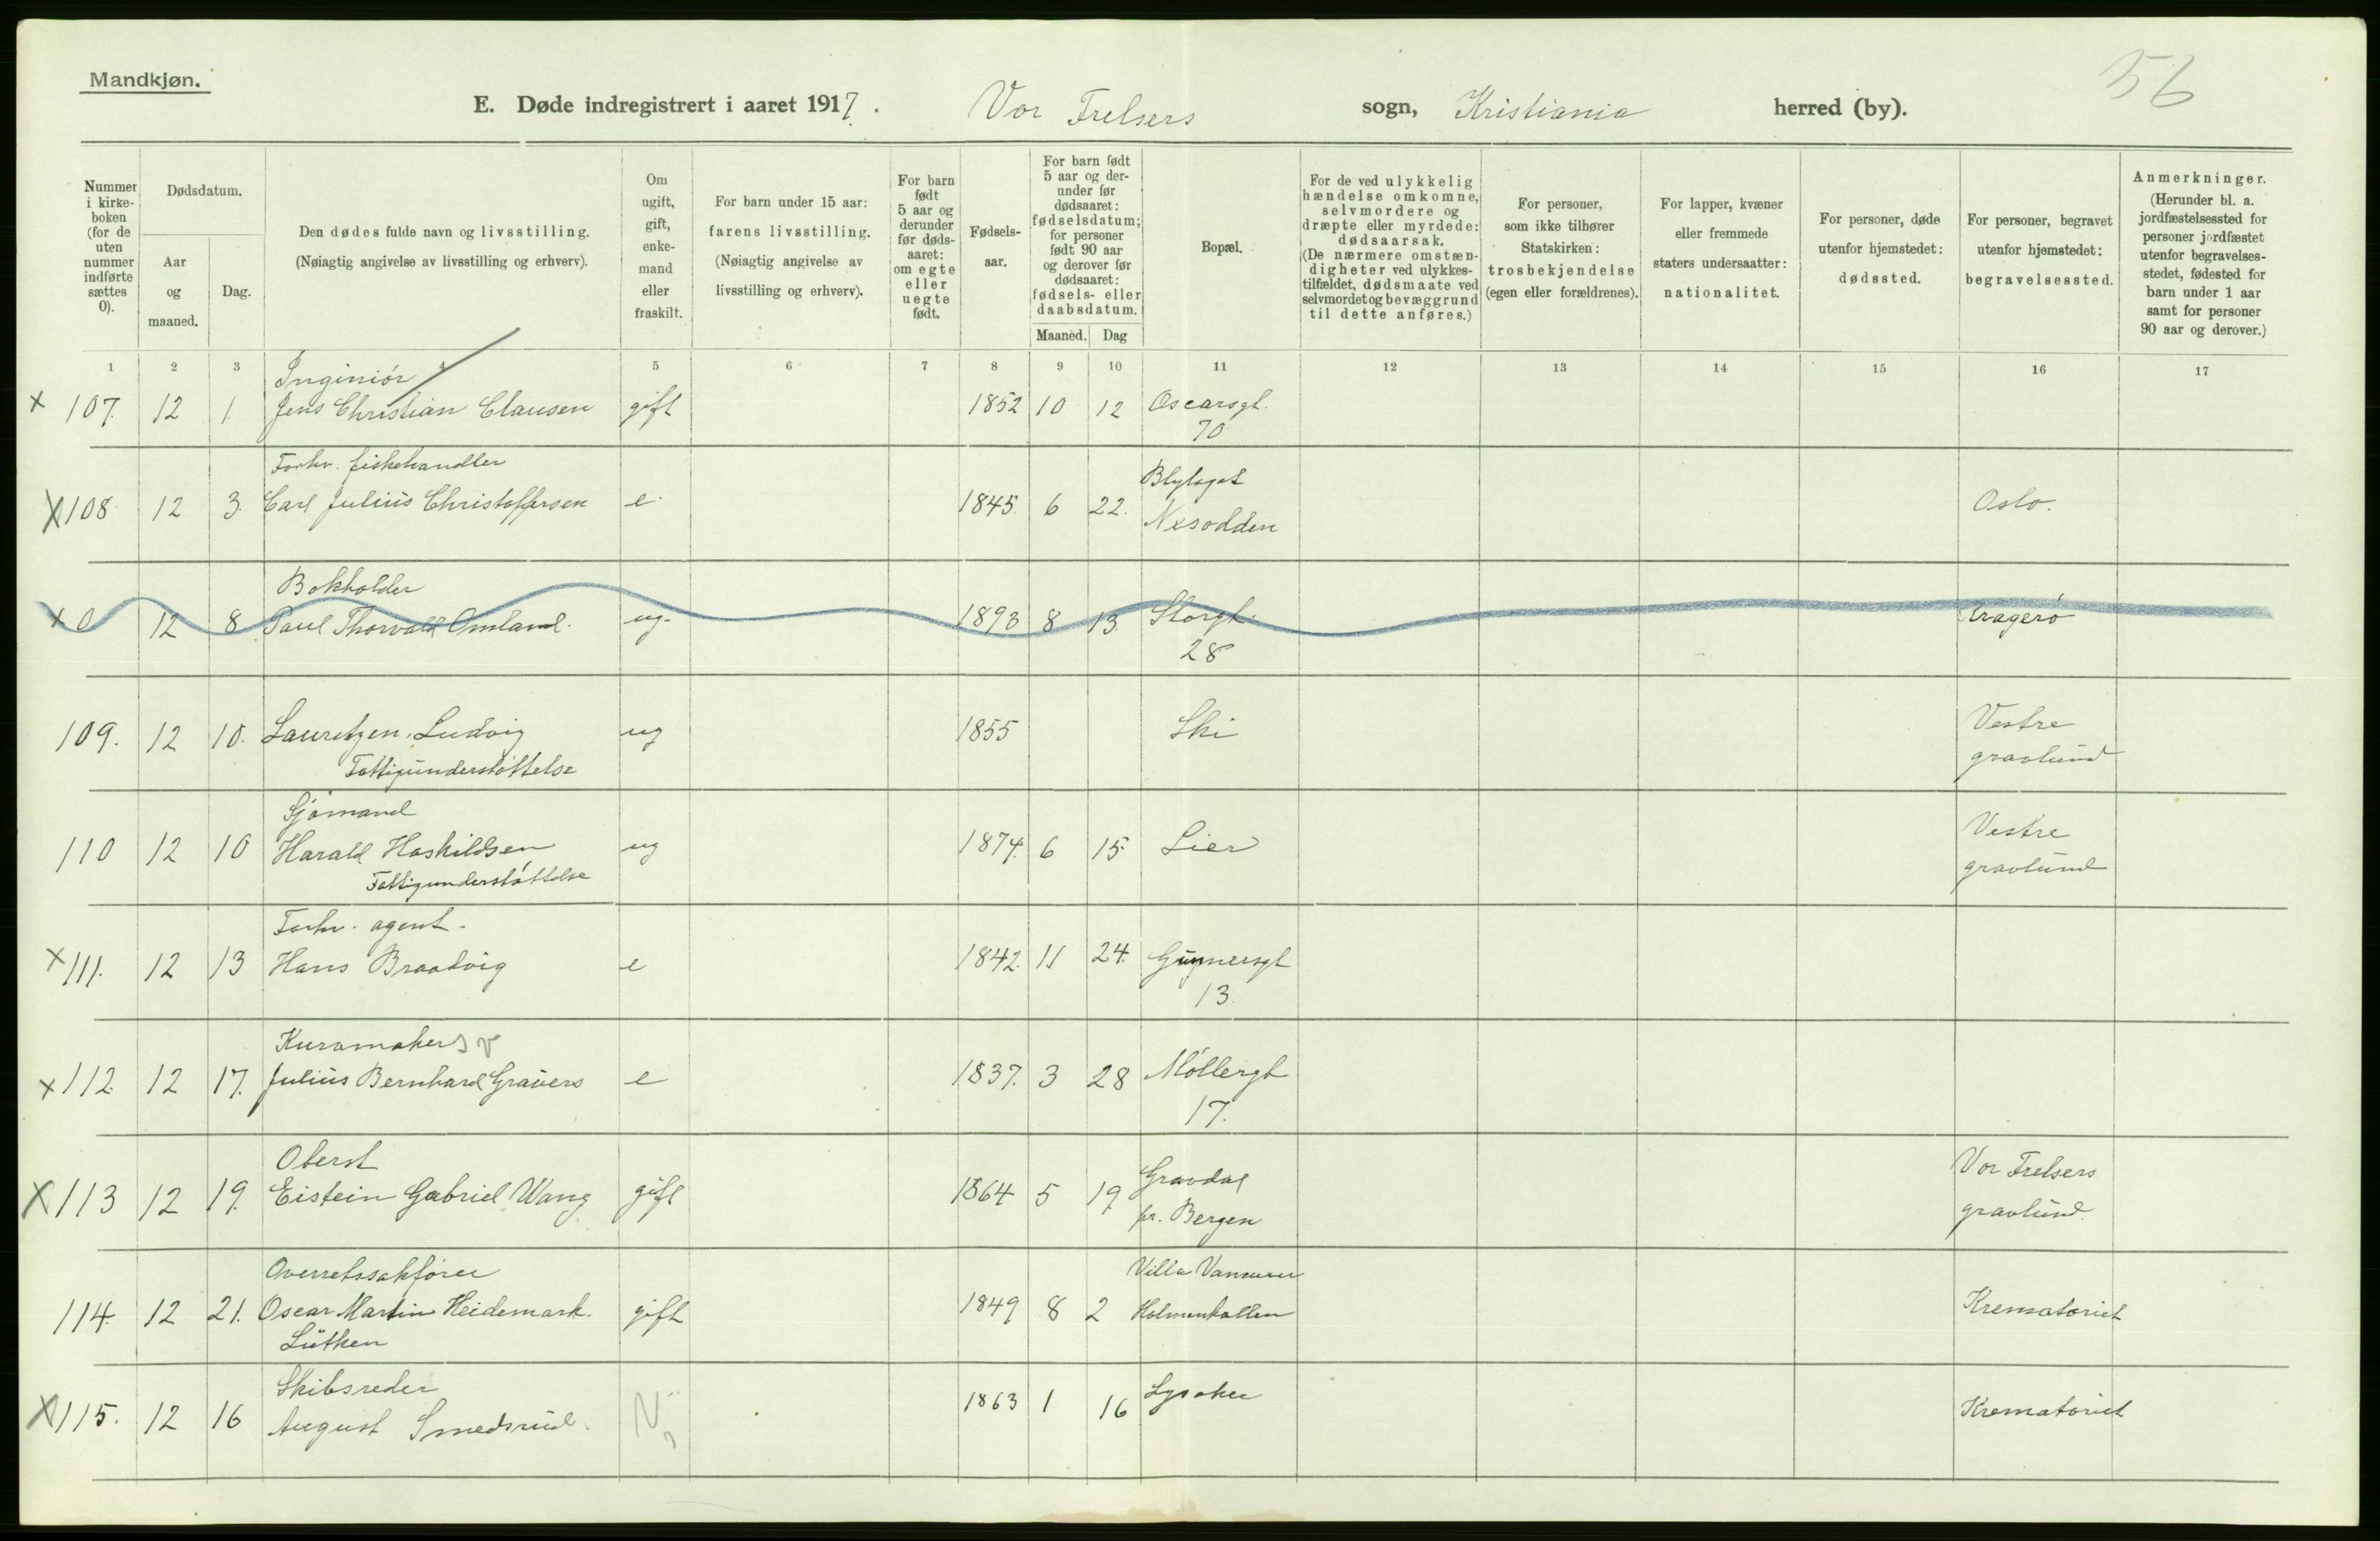 Mandkjøn.
56
E. Døde indregistrert i aaret 1917. Vor Frelsers sogn, Kristiania herred (by).
Nummer i kirke-boken (for de uten nummer indførte sættes 0).
Dødsdatum.
Aar og maaned.
Dag.
Den dødes fulde navn og livsstilling. (Nøiagtig angivelse av livsstilling og erhverv).
Om ugift, gift, enke-mand eller fraskilt.
For barn under 15 aar: farens livsstilling. (Nøiagtig angivelse av livsstilling og erhverv).
For barn født 5 aar og derunder før døds-aaret: om egte eller uegte født.
Fødsels-aar.
For barn født 5 aar og der-under før dødsaaret: fødselsdatum; for personer født 90 aar og derover før dødsaaret: fødsels- eller daabsdatum.
Maaned. Dag
Bopæl.
For de ved ulykkelig hændelse omkomne, selvmordere og dræpte eller myrdede: dødsaarsak. (De nærmere omstæn-digheter ved ulykkes-tilfældet, dødsmaate ved selvmordet og bevæggrund til dette anføres.)
For personer, som ikke tilhører Statskirken: trosbekjendelse (egen eller forældrenes).
For lapper, kvæner eller fremmede staters undersaatter: nationalitet.
For personer, døde utenfor hjemstedet: dødssted.
For personer, begravet utenfor hjemstedet: begravelsessted.
Anmerkninger. (Herunder bl. a. jordfæstelsessted for personer jordfæstet utenfor begravelses-stedet, fødested for barn under 1 aar samt for personer 90 aar og derover.)
1 2 3 4 5 6 7 8 9 10 11 12 13 14 15 16 17
Inginiör
x 107. 12 1. Jens Christian Clausen gift 1852 10 12 Oscarsgt.
70
Forhv. fiskehandler Blylaget
x 108 12 3. Carl Julius Christoffersen e. 1845. 6 22. Nesodden Oslo.
Bokholder
x 0 12 8 Paul Thorvald Omland. ug. 1893 8 13. Storgt. Kragerø
28
109. 12 10. Lauretzen, Ludvig ug 1855 Ski Vestre
Fattigunderstøttelse gravlund
Sjømand Vestre
110 12 10 Harald Haskildsen ug 1874. 6 15. Lier gravlund
Fattigunderstøttelse
Forhv. agent.
x 111. 12 13 Hans Braadvig e 1842. 11 24. Gunnersgt
13.
Kurvmaker
x 112 12 17. Julius Bernhard Gravers e 1837. 3 28 Møllergt
17.
Oberst Gravdal Vor Frelsers
x 113 12 19. Eistein Gabriel Wang gift 1864 5 19 pr. Bergen gravlund.
Overretssakfører Villa
114. 12 21. Oscar Martin Heidemark. gift 1849 8 2 Holmenkollen Krematoriet
Lütken
Skibsreder
x 115. 12 16 August Smedsrud. 1863 1 16 Lysaker Krematoriet